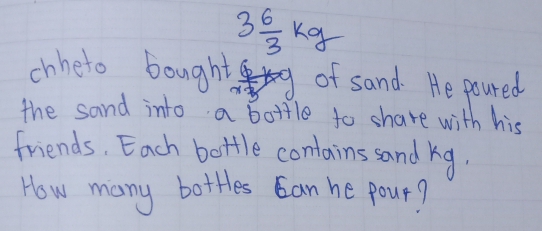 3 6/3 kg
chheto bought of sand. He poured
the sand into a bottle to share with his
friends. Each bottle contains sand kg.
How many bottles can he pour?